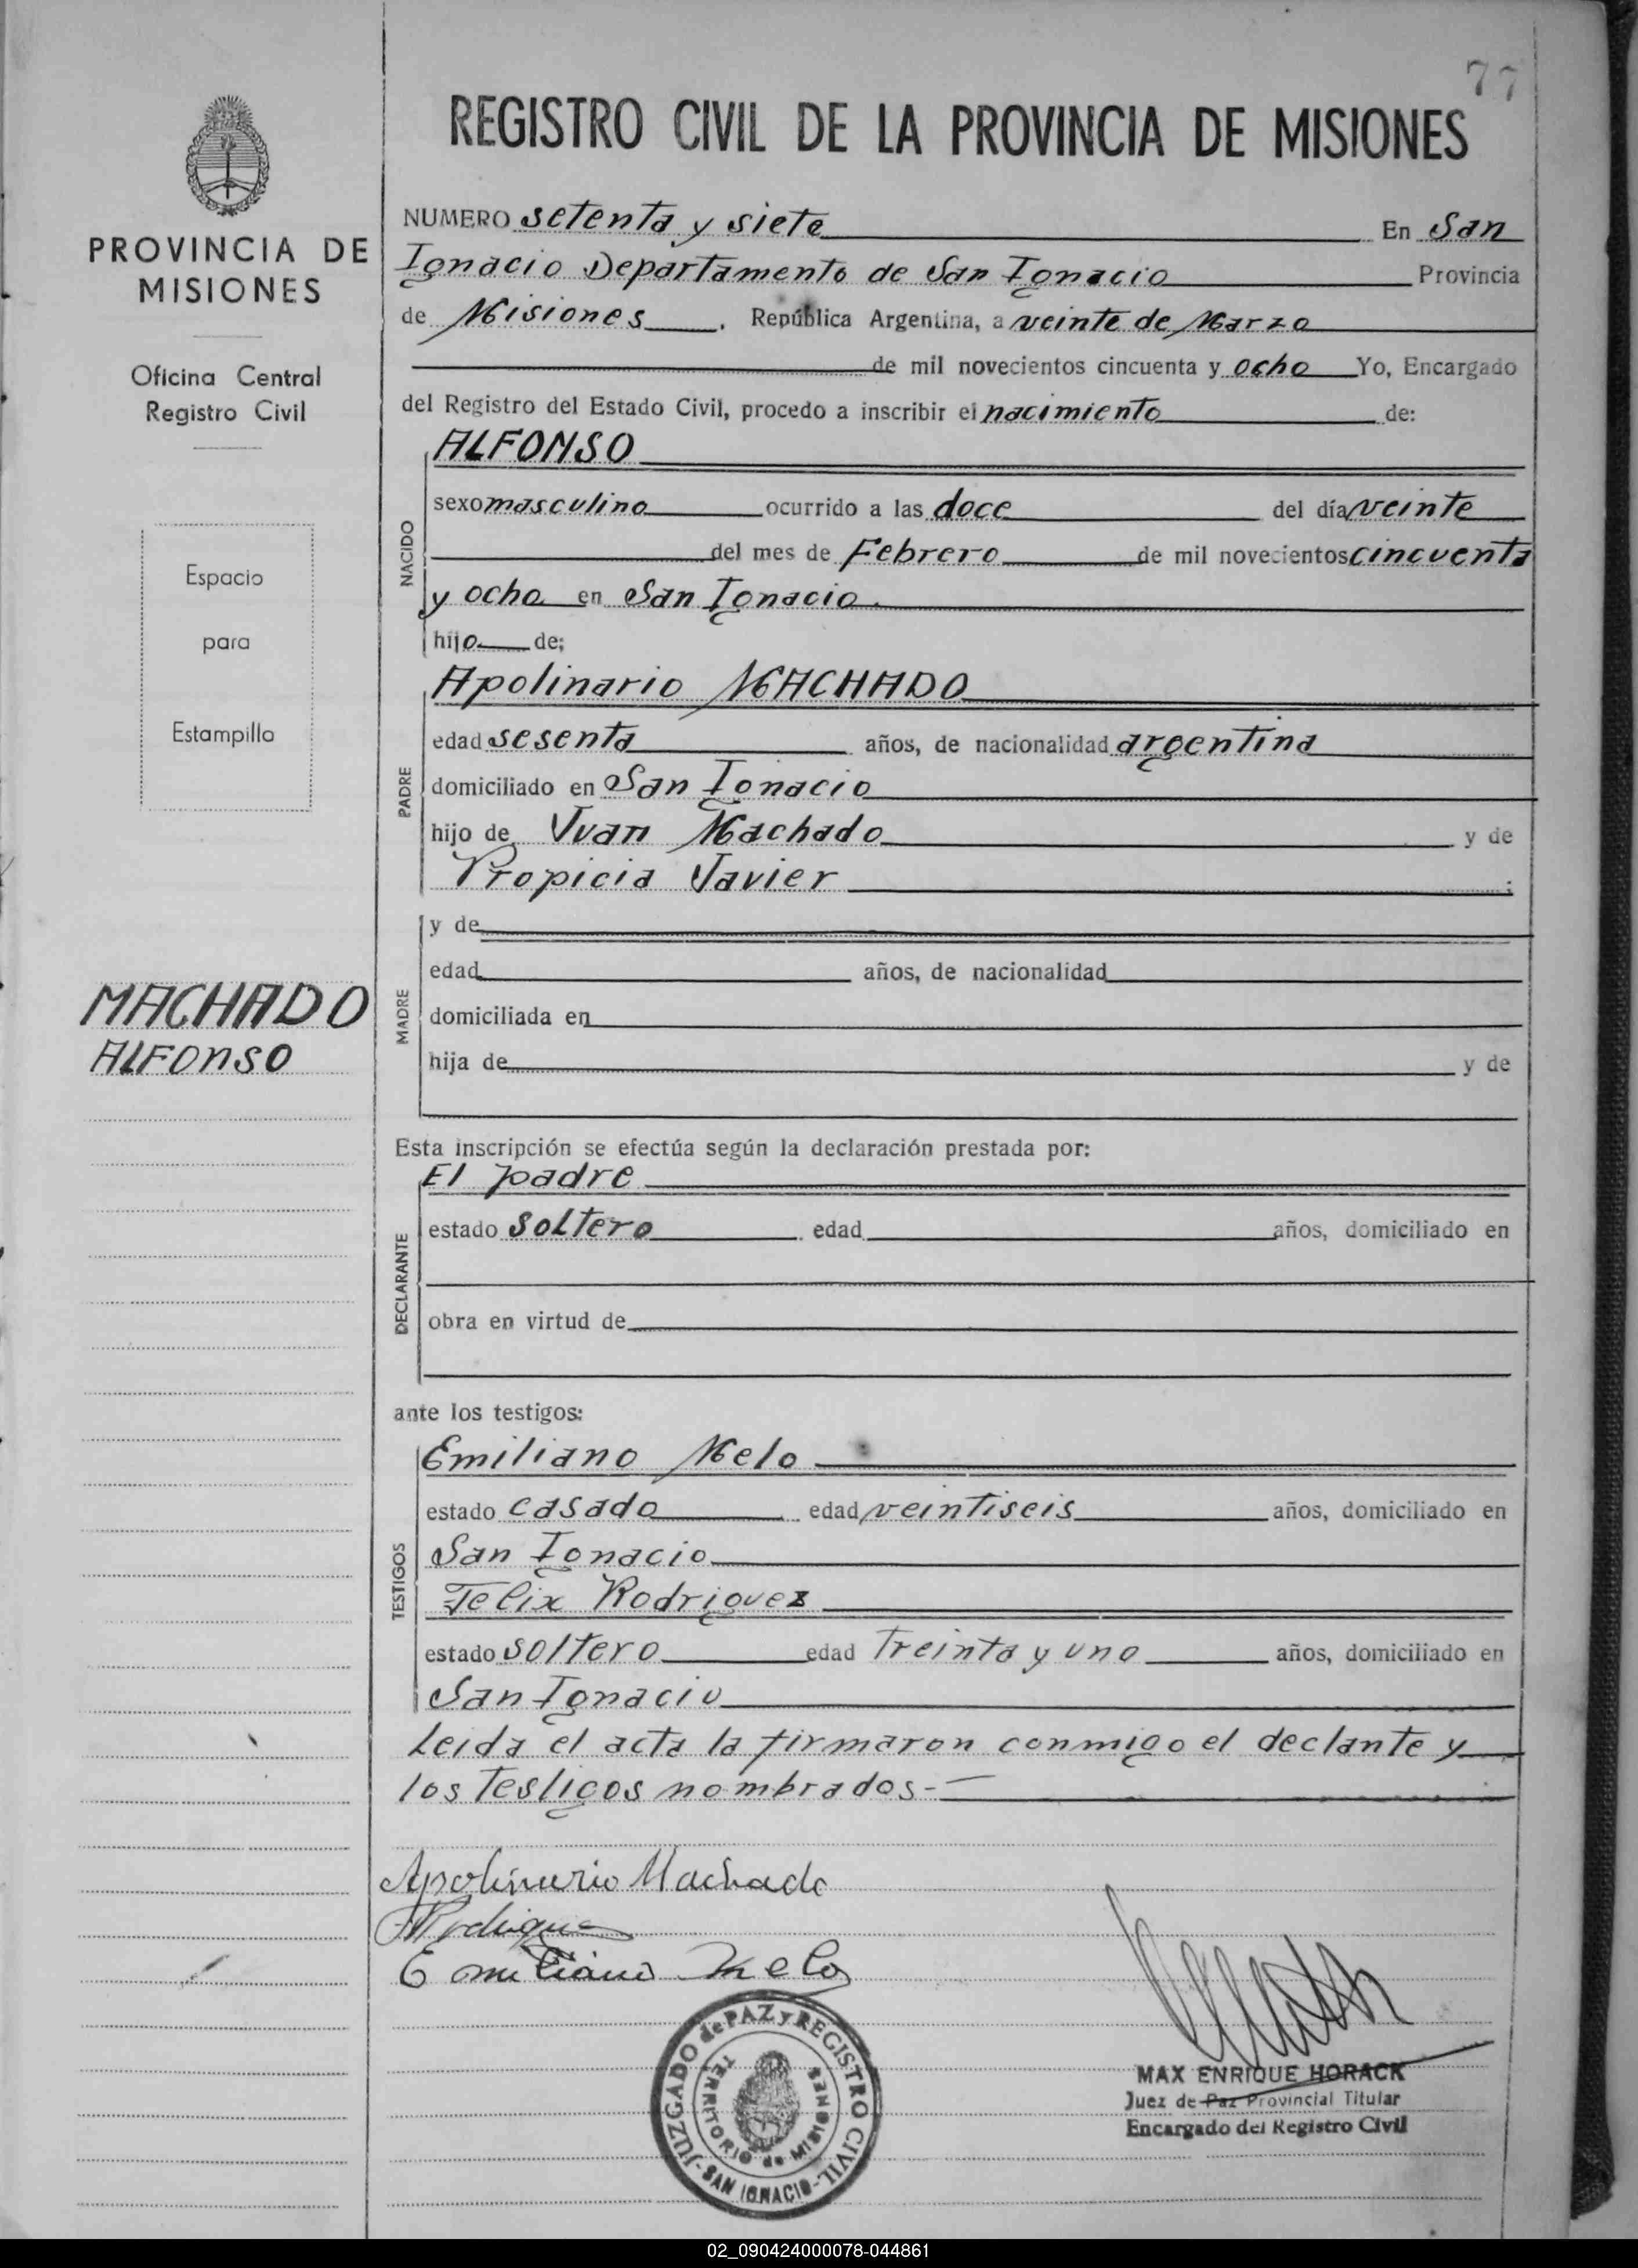 77
REGISTRO CIVIL DE LA PROVINCIA DE MISIONES
PROVINCIA DE
MISIONES
Oficina Central
Registro Civil
Espacio
para
Estampilla
MACHADO
ALFONSO
NUMERO setenta y siete En San
Ignacio Departamento de San Ignacio Provincia
de Misiones. República Argentina, a veinte de Marzo
de mil novecientos cincuenta y ocho Yo, Encargado
del Registro del Estado Civil, procedo a inscribir el nacimiento de:
NACIDO
ALFONSO
sexo masculino ocurrido a las doce del día veinte
del mes de Febrero de mil novecientos cincuenta
y ocho en San Ignacio.
hijo de;
PADRE
Apolinario MACHADO
edad sesenta años, de nacionalidad argentina
domiciliado en San Ignacio
hijo de Juan Machado y de
Propicia Javier ;
MADRE
y de
edad años, de nacionalidad
domiciliada en
hija de y de
Esta inscripción se efectúa según la declaración prestada por:
DECLARANTE
El padre
estado soltero edad años, domiciliado en
obra en virtud de
ante los testigos:
TESTIGOS
Emiliano Melo
estado casado edad veintiseis años, domiciliado en
San Ignacio
Felix Rodriguez
estado soltero edad Treinta y uno años, domiciliado en
San Ignacio
Leida el acta la firmaron conmigo el declante y
los Testigos nombrados.-
Apolinario Machado
Emiliano Melo
JUZGADO de PAZ y REGISTRO CIVIL
TERRITORIO de MISIONES
-SAN IGNACIO-
MAX ENRIQUE HORACK
Juez de Paz Provincial Titular
Encargado del Registro Civil
02_090424000078-044861